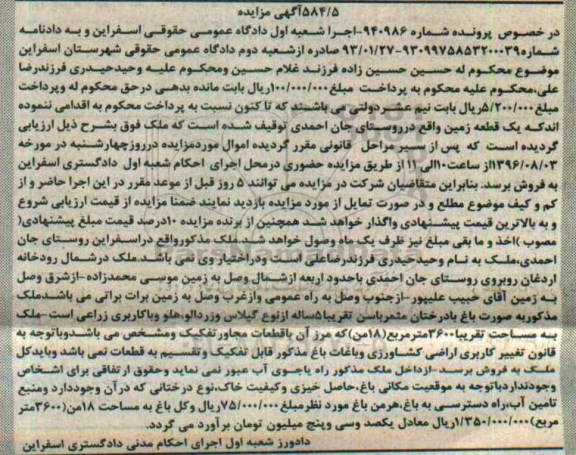 ۵۸۴/۵آگهی مزایده
در خصوص پرونده شماره ۹۴۰۹۸۶-اجرا شعبه اول دادگاه عمومی حقوقی اسفراین و به دادنامه
شماره۹۳۰۹۹۷۵۸۵۳۲۰۰۰۳۹-۹۳/۰۱/۲۷ صادره ازشعبه دوم دادگاه عمومی حقوقی شهرستان اسفراین
موضوع محکوم له حسین حسین زاده فرزند غلام حسین ومحکوم علیه وحیدحیدری فرزندرضا
علی،محکوم علیه محکوم به پرداخت مبلغ۱۰۰/۰۰۰/۰۰۰ریال بابت مانده بدهی درحق محکوم له وپرداخت
مبلغ۵/۲۰۰/۰۰۰ریال بابت نیم عشردولتی می باشند که تا کنون نسبت به پرداخت محکوم به اقدامی ننموده
اندکه یک قطعه زمین واقع درروستای جان احمدی توقیف شده است که ملک فوق بشرح ذیل ارزیابی
گردیده است که پس از سیر مراحل قانونی مقرر گردیده اموال موردمزایده درروزچهارشنبه در مورخه
۱۳۹۶/۰۸/۰۳از ساعت۱۰الی ۱۱ از طریق مزایده حضوری درمحل اجرای احکام شعبه اول دادگستری اسفراین
به فروش برسد. بنابراین متقاضیان شرکت در مزایده می توانند ۵ روز قبل از موعد مقرر در این اجرا حاضر و از
کم و کیف موضوع مطلع و در صورت تمایل از مورد مزایده بازدید نمایند ضمنا مزایده از قیمت ارزیابی شروع
و به بالاترین قیمت پیشنهادی واگذار خواهد شد همچنین از برنده مزایده ۱۰درصد قیمت مبلغ پیشنهادی(
مصوب )اخذ و ما بقی مبلغ نیز ظرف یک ماه وصول خواهد شد.ملک مذکورواقع دراسفراین روستای جان
احمدی،ملک به نام وحیدحیدری فرزندرضاعلی است ودراختیاروی نمی باشد.ملک درشمال رودخانه
اردغان روبروی روستای جان احمدی باحدود اربعه ازشمال وصل به زمین موسی محمدزاده-ازشرق وصل
به زمین آقای حبیب علیپور-ازجنوب وصل به راه عمومی وازغرب وصل به زمین برات براتی می باشدملک
مذکوربه صورت باغ بادرختان مثمرباسن تقریبا۵ساله ازنوع گیلاس وزردالو،هلو وباکاربری زراعی است-ملک
به مساحت تقریبا۳۶۰۰مترمربع(۱۸من)که مرز آن باقطعات مجاورتفکیک ومشخص می باشدوباتوجه به
قانون تغییر کاربری اراضی کشاورزی وباغات باغ مذکور قابل تفکیک وتقسیم به قطعات نمی باشد وبایدکل
ملک به فروش برسد-ازداخل ملک مذکور راه یاجوی آب عبور نمی نماید وحقوق ارتفاقی برای اشخاص
وجودنداردباتوجه به موقعیت مکانی باغ،حاصل خیزی وکیفیت خاک،نوع درختانی که درآن وجوددارد ومنبع
تامین آب،راه دسترسی به باغ،هرمن باغ مورد نظرمبلغ۷۵/۰۰۰/۰۰۰ریال وکل باغ به مساحت ۱۸من(۳۶۰۰متر
مربع)۱/۳۵۰/۰۰۰/۰۰۰ریال معادل یکصد وسی وپنج میلیون تومان برآورد می گردد.
دادورز شعبه اول اجرای احکام مدنی دادگستری اسفراین